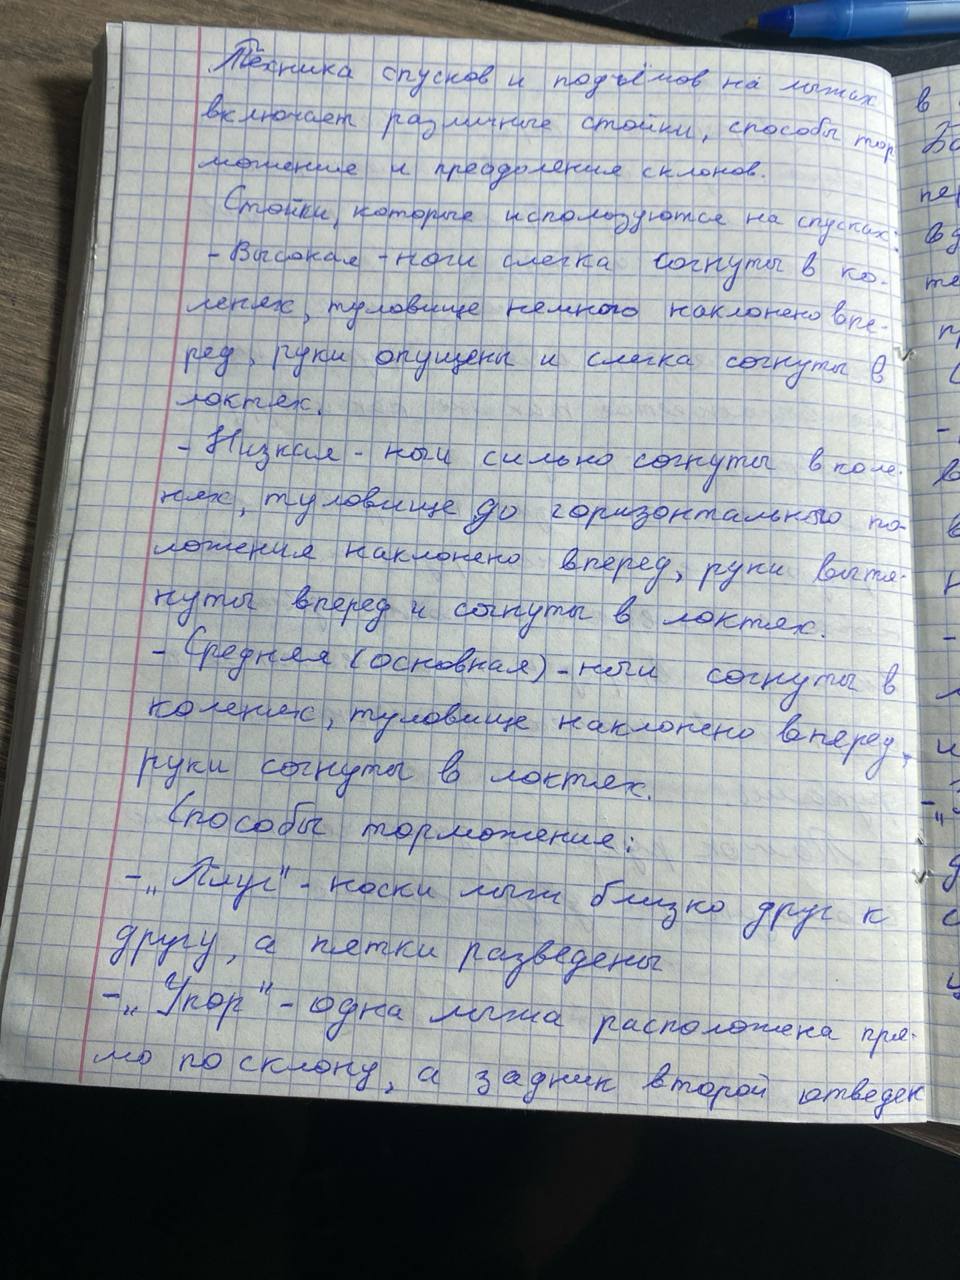 Техника спусков и подъёмов на лыжах
включает различные стойки, способы тор
можение и преодоления склонов.
Стойки, которые используются на спусках:
- Высокая - ноги слегка согнуты в ко-
ленях, туловище немного наклонено впе-
ред, руки опущены и слегка согнуты в
локтях.
- Низкая - ноги сильно согнуты в коле-
нях, туловище до горизонтального по-
ложения наклонено вперед, руки вытя-
нуты вперед и согнуты в локтях.
- Средняя (основная) - ноги согнуты в
коленях, туловище наклонено вперед,
руки согнуты в локтях.
Способы торможения:
- „Плуг" - носки лыж близко друг к
другу, а пятки разведены
- „Упор" - одна лыжа расположена пря-
мо по склону, а задник второй отведен